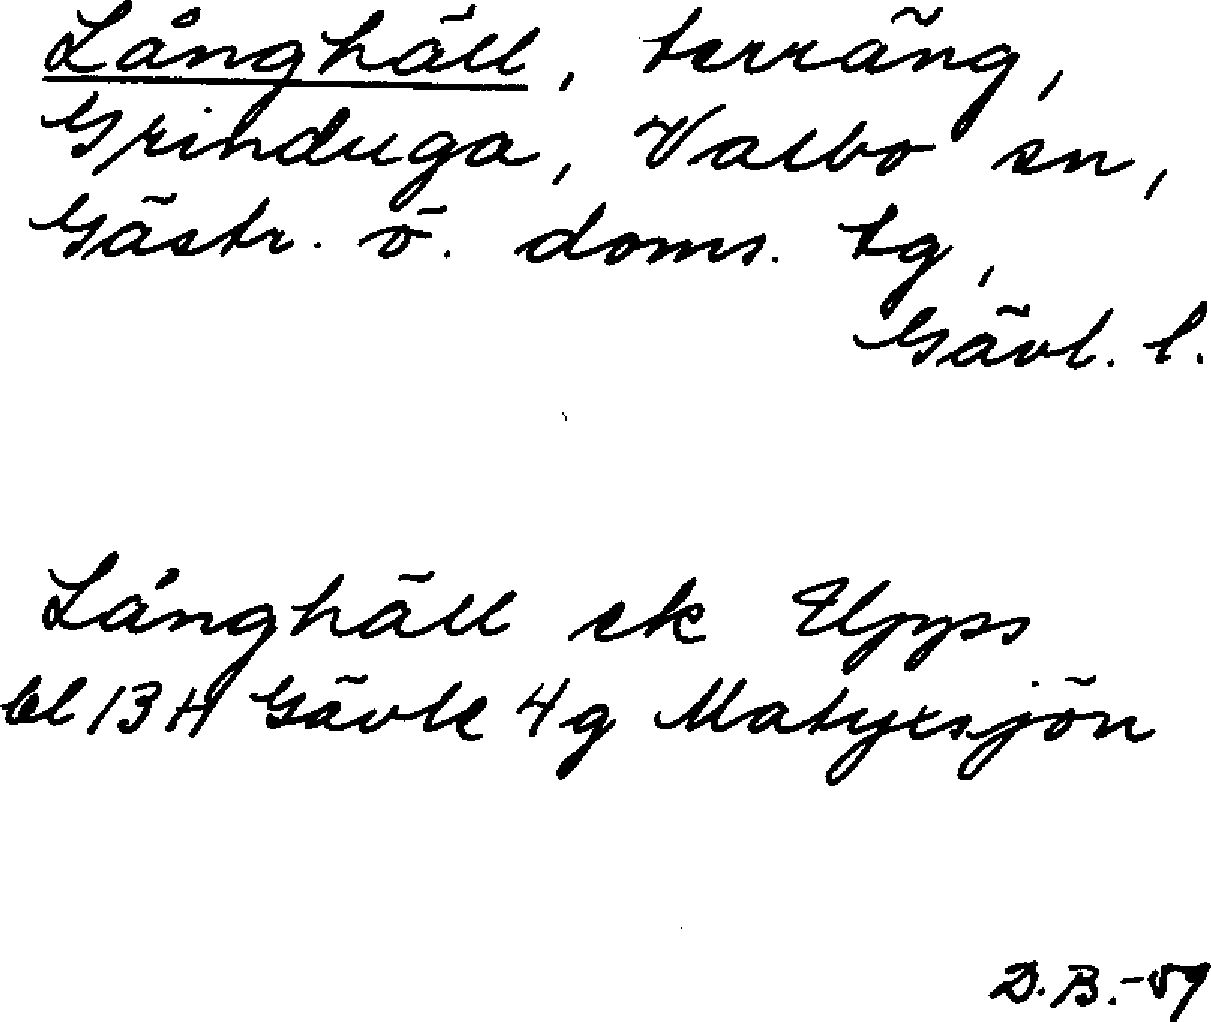 Långhäll, terräng,
Grinduga, Valbo sn,
Gästr. ö. doms. tg,
Gävl. l.
Långhäll ek Upps
bl 13 H Gävle 4 g Matyxsjön
D.B.-59